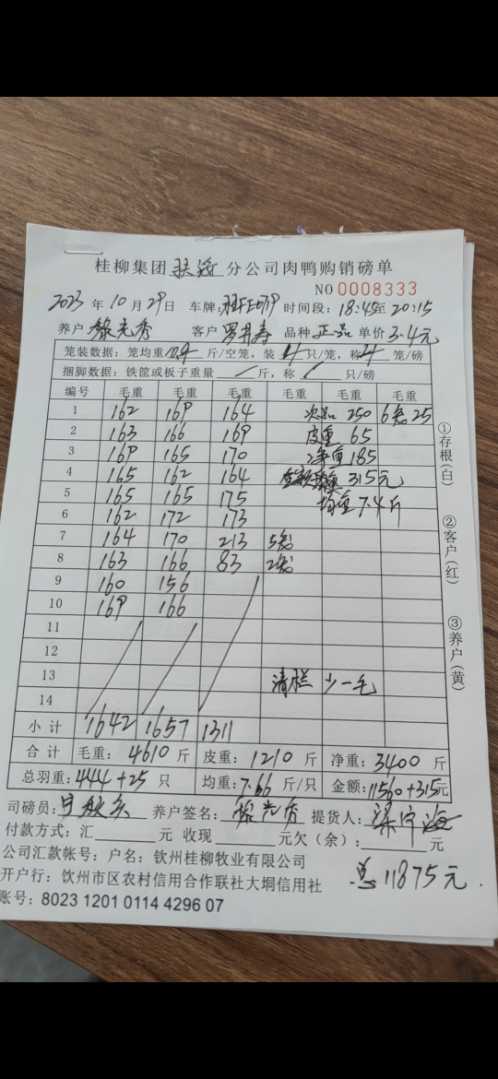 桂柳集团 分公司肉鸭购销磅单
NO 0008333
2023 年 10 月 29 日 车牌: 时间段: 18:45至 20:15
养户 黎克秀 客户 品种 正品 单价 3.4元
笼装数据: 笼均重 斤/空笼, 装 4 只/笼, 称 4 笼/磅
捆脚数据: 铁筐或板子重量 / 斤, 称 / 只/磅
编号 毛重 毛重 毛重 毛重 毛重 毛重
1 162 169 164 次品 250 6笼 25
2 163 166 169 皮重 65
3 169 165 170 净重 185
4 165 162 164 315元
5 165 165 175 均重 7.4斤
6 162 172 173
7 164 170 213 5笼
8 163 166 83 2笼
9 160 156
10 169 166
11
12
13 清栏 少一毛
14
小计 1642 1657 1311
合计 毛重: 4610 斤 皮重: 1210 斤 净重: 3400 斤
总羽重: 444+25 只 均重: 7.66 斤/只 金额: 11560+315元
司磅员: 养户签名: 黎克秀 提货人: 梁宁海
付款方式: 汇 元 收现 元欠(余): 元
公司汇款帐号: 户名: 钦州桂柳牧业有限公司
开户行: 钦州市区农村信用合作联社大垌信用社
总11875元
账号: 8023 1201 0114 4296 07
①存根(白)
②客户(红)
③养户(黄)